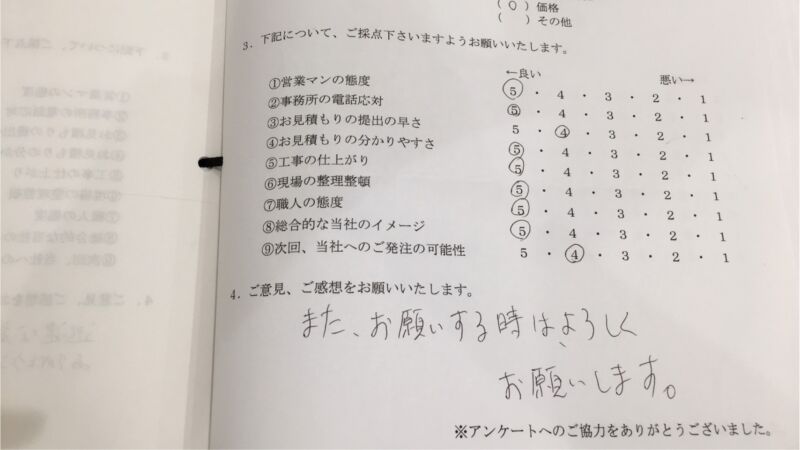 ( ○ ) 価格
(　) その他
3．下記について、ご採点下さいますようお願いいたします。
←良い　悪い→
①営業マンの態度　⑤ ・ 4 ・ 3 ・ 2 ・ 1
②事務所の電話応対　⑤ ・ 4 ・ 3 ・ 2 ・ 1
③お見積もりの提出の早さ　5 ・ ④ ・ 3 ・ 2 ・ 1
④お見積もりの分かりやすさ　⑤ ・ 4 ・ 3 ・ 2 ・ 1
⑤工事の仕上がり　⑤ ・ 4 ・ 3 ・ 2 ・ 1
⑥現場の整理整頓　⑤ ・ 4 ・ 3 ・ 2 ・ 1
⑦職人の態度　⑤ ・ 4 ・ 3 ・ 2 ・ 1
⑧総合的な当社のイメージ　⑤ ・ 4 ・ 3 ・ 2 ・ 1
⑨次回、当社へのご発注の可能性　5 ・ ④ ・ 3 ・ 2 ・ 1
4．ご意見、ご感想をお願いいたします。
また、お願いする時は、よろしく
お願いします。
※アンケートへのご協力をありがとうございました。